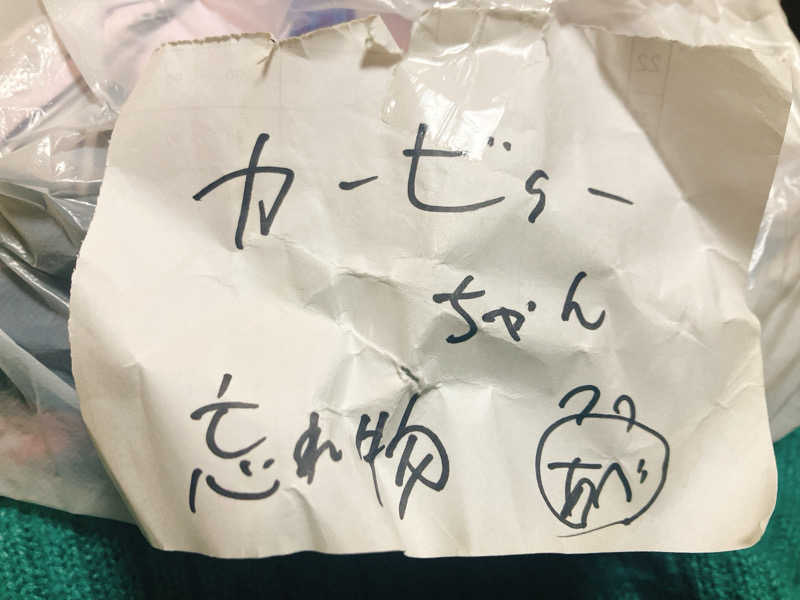 カービィー
ちゃん
忘れ物
あべ